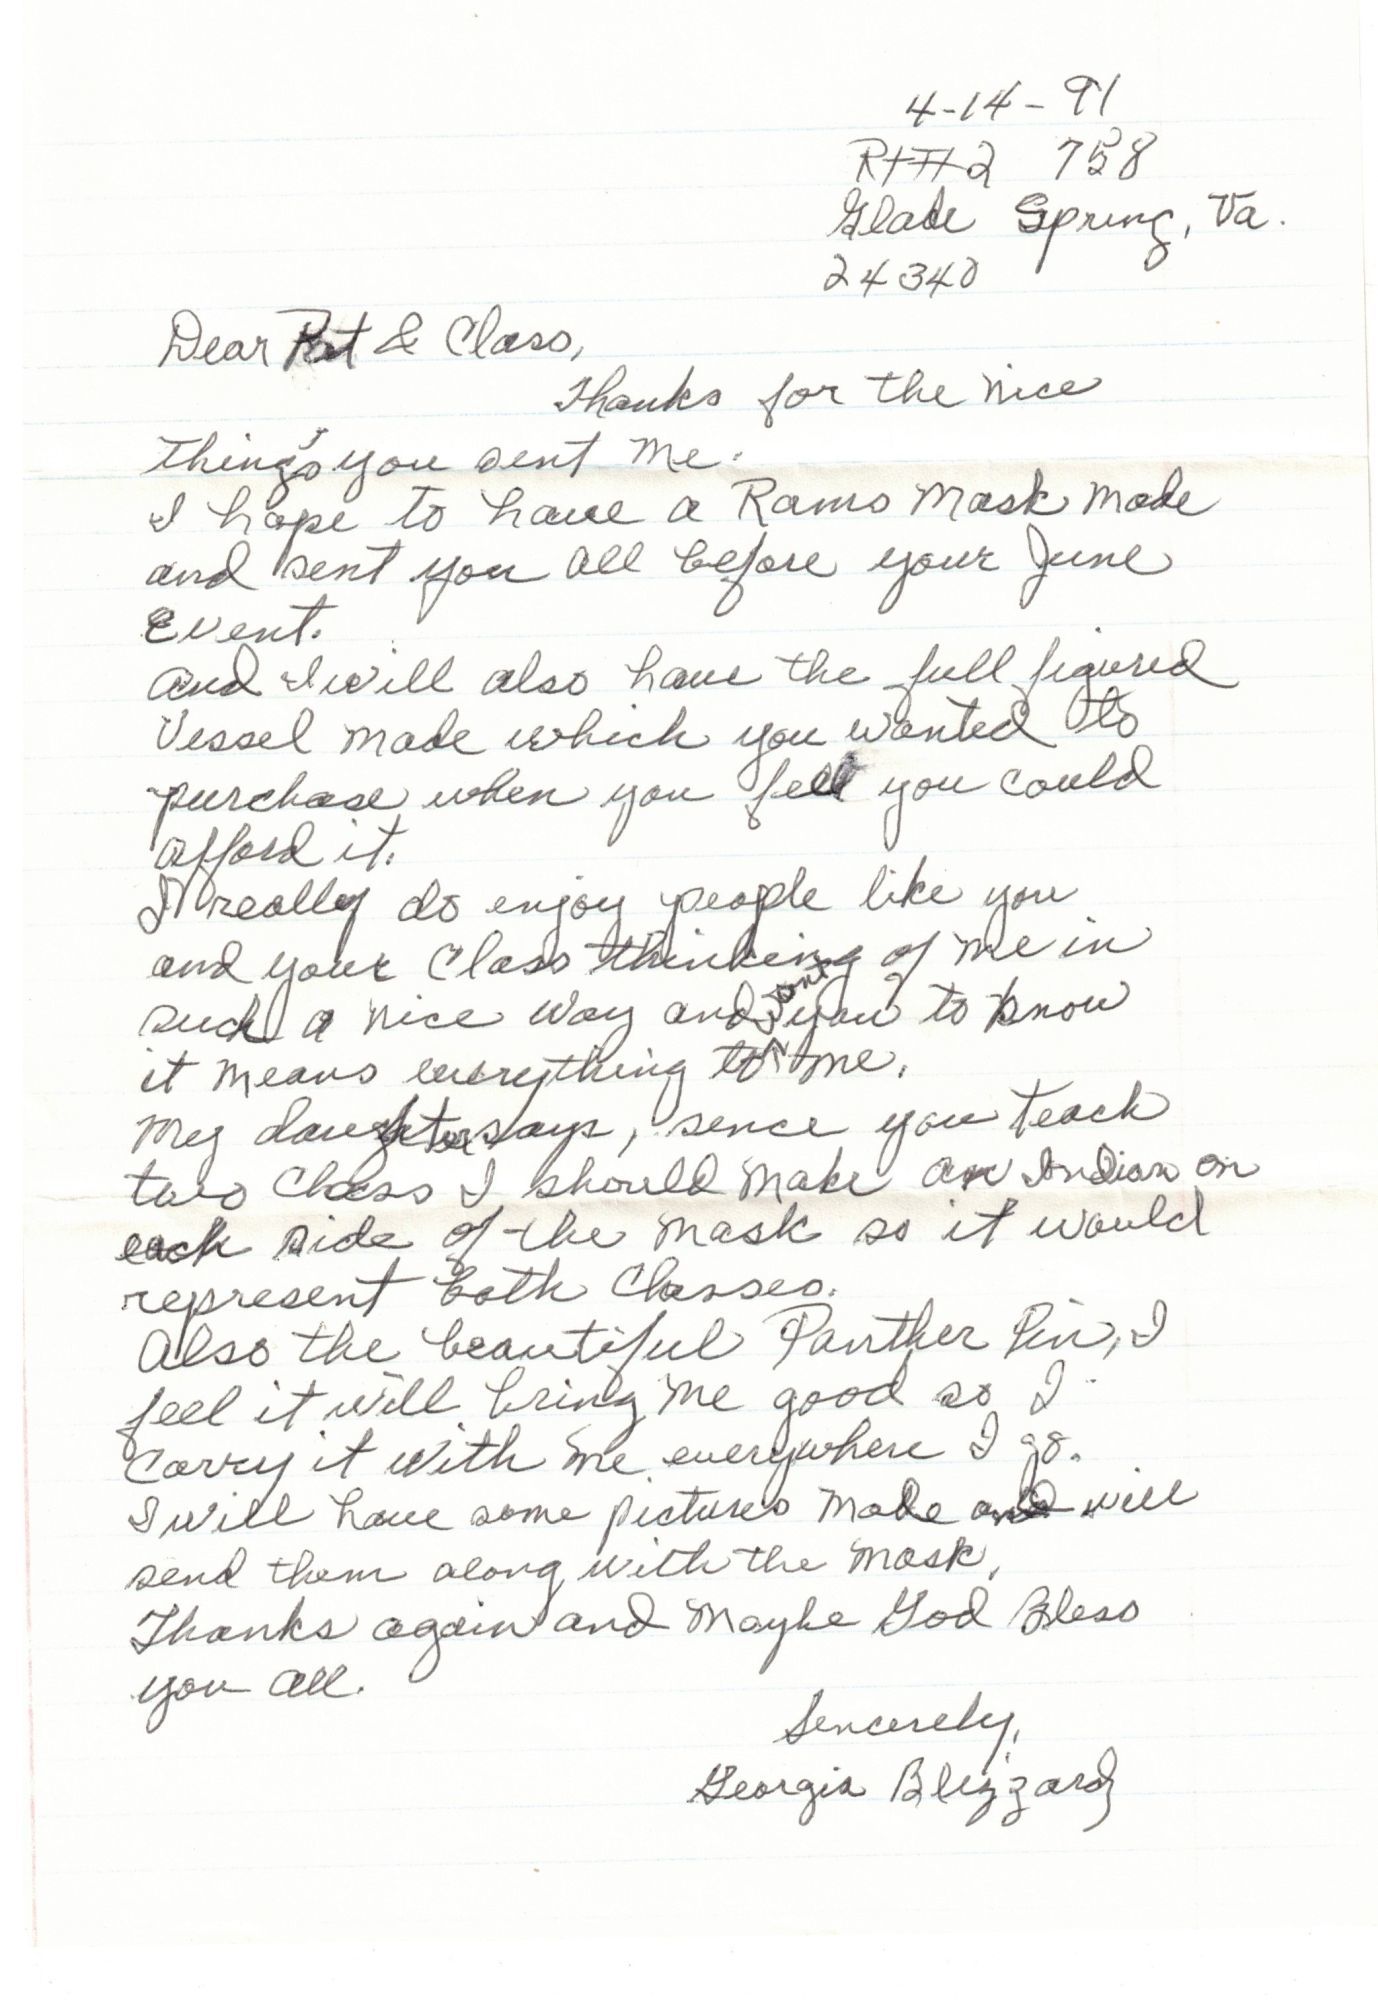 4-14-91
Rt#2 758
Glade Spring, Va.
24340
Dear Pat & Class,
Thanks for the nice
things you sent me.
I hope to have a Rams Mask made
and sent you all before your June
event.
and I will also have the full figured
Vessel made which you wanted to
purchase when you felt you could
afford it.
I really do enjoy people like you
and your Class thinking of me in
such a nice way and I want you to know
it means everything to me.
My daughter says, sence you teach
two Class I should make an Indian on
each side of the mask so it would
represent both Classes.
Also the beautiful Panther Pin, I
feel it will bring me good so I
carry it with me everywhere I go.
I will have some pictures made and will
send them along with the mask.
Thanks again and Maybe God Bless
you all.
Sencerely,
Georgia Blizzard